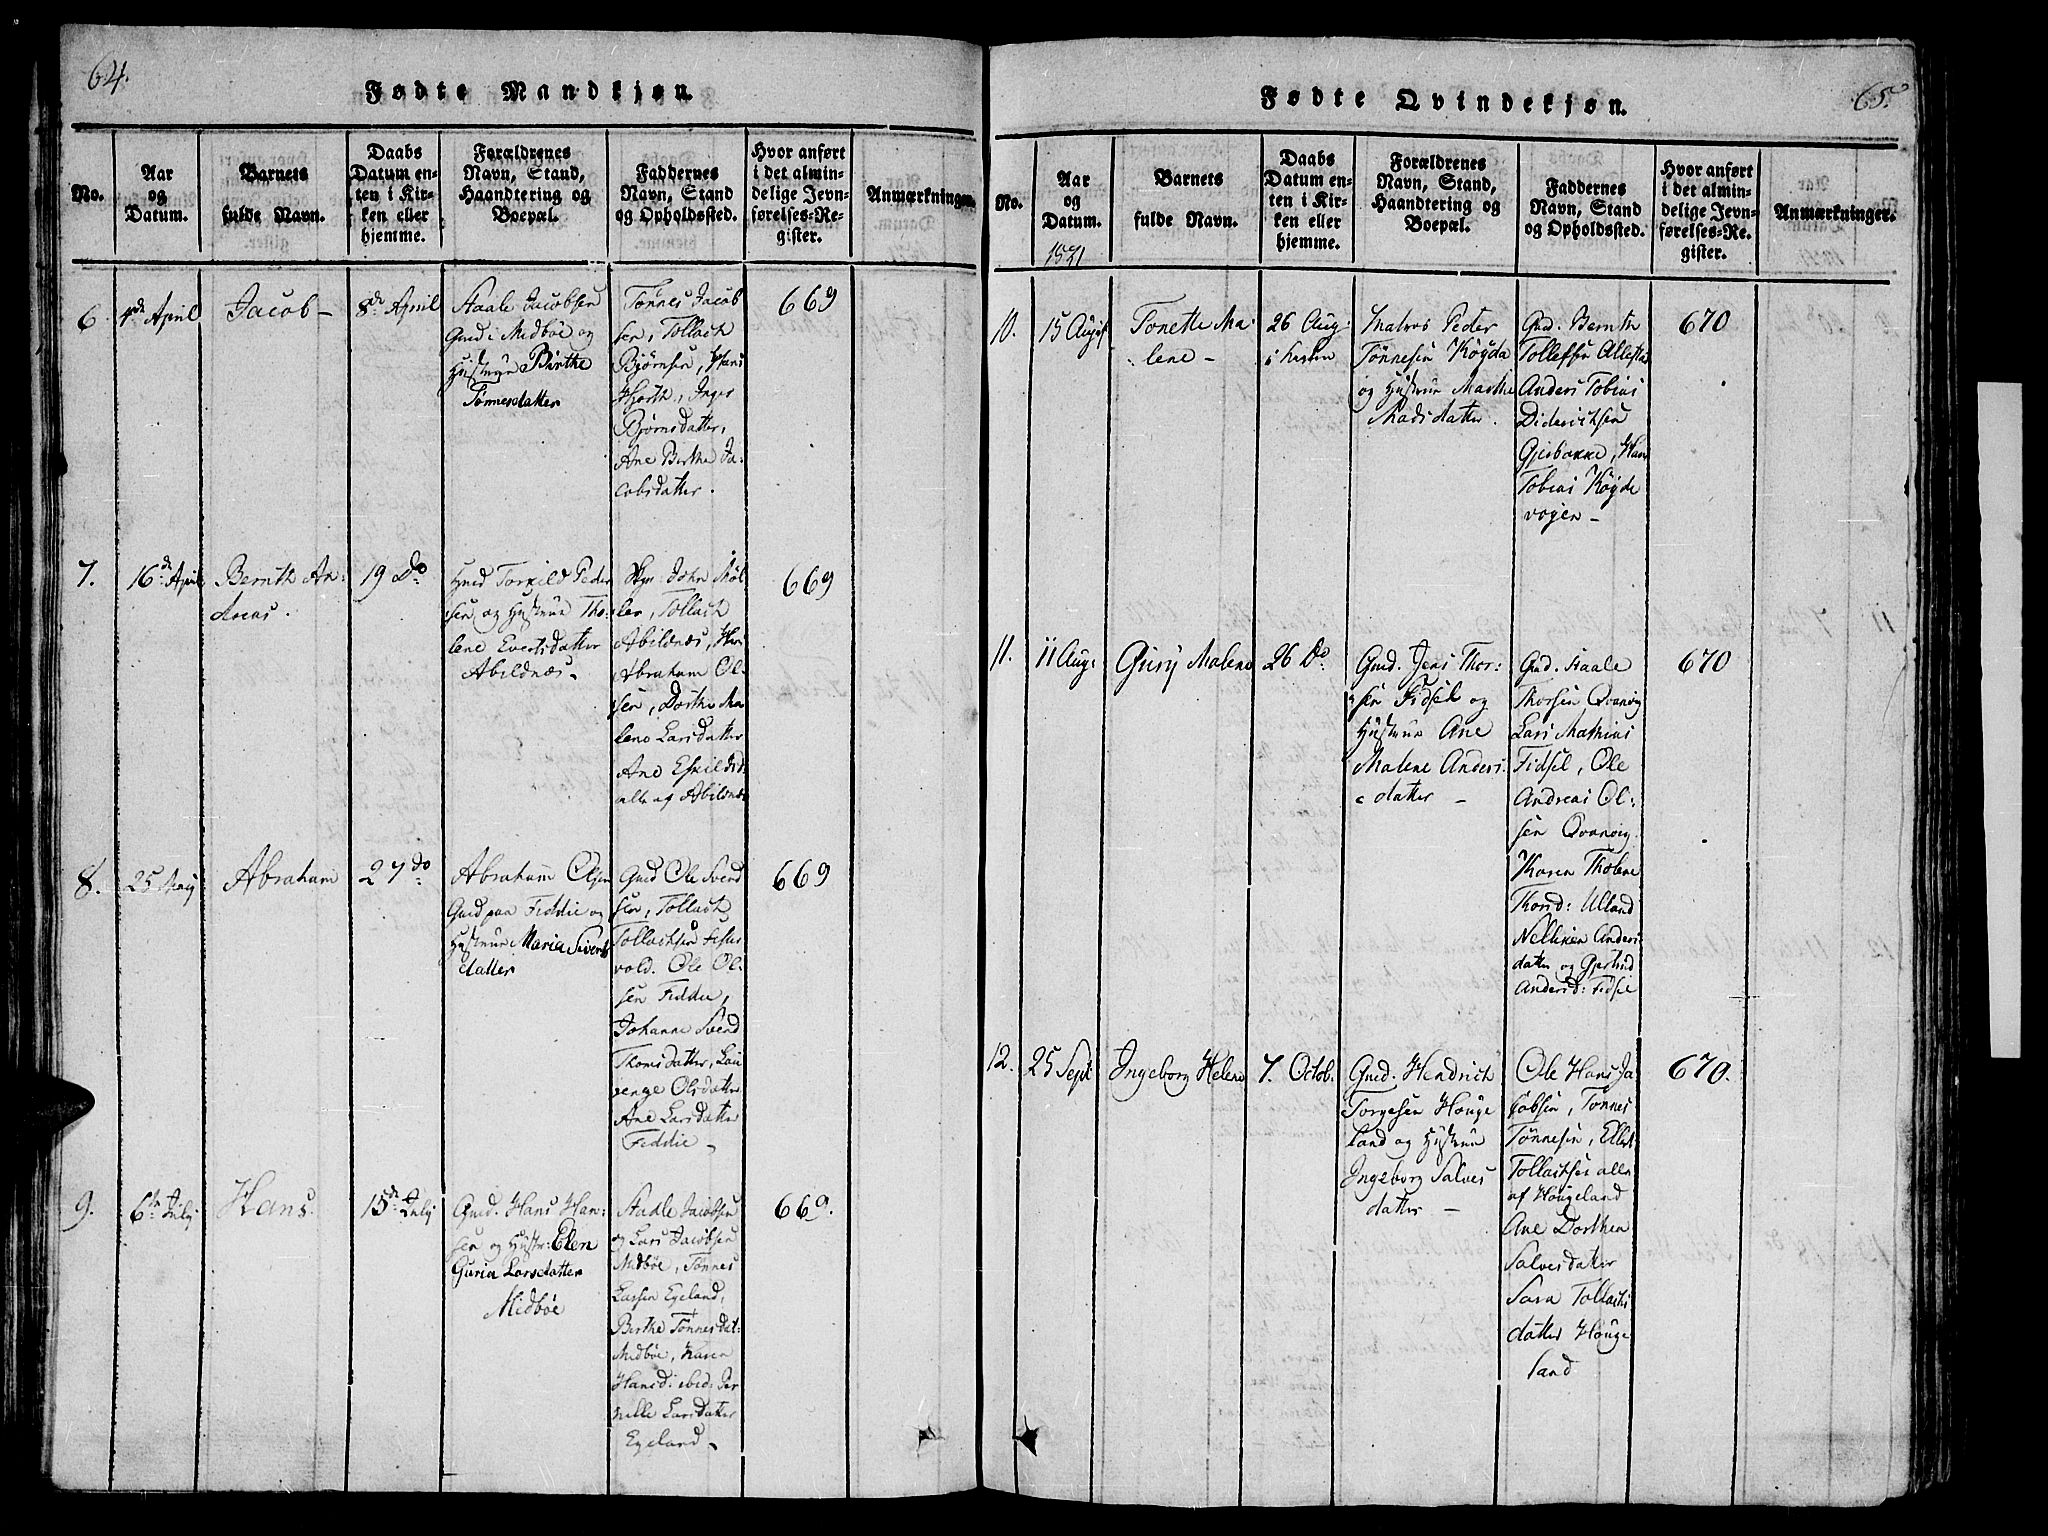 64.
Fødte Mandkjøn.
No.
Aar
og
Datum.
Barnets
fulde Navn.
Daabs
Datum en-
ten i Kir-
ken eller
hjemme.
Forældrenes
Navn, Stand,
Haandtering og
Boepæl.
Faddernes
Navn, Stand
og Opholdssted.
Hvor anført
i det almin-
delige Jevn-
førelses-Re-
gister.
Anmærkninger.
6.
4de April
Jacob -
8de April
Staale Jacobsen
Gmd i Midbøe og
Hustrue Birthe
Tønnesdatter
Tønnes Jacob
sen, Tollach
Bjørnsen, Hans
Hjorth, Inger
Bjørnsdatter,
Ane Berthe Ja-
cobsdatter.
669
7.
16de April
Bernth An-
dreas.
19 Do
Gmd Torkild Peder
sen og Hustrue Tho-
lene Evertsdatter
Abildnæs.
John Møl-
ler, Tollach
Abildnæs, Hans
Abraham Ol-
sen, Dorthe Ma
lene Larsdatter
Ane Eskildsd:
alle af Abildnæs
669
8.
25 Maij
Abraham
27 do
Abraham Olsen
Gmd paa Feddie og
Hustrue Maria Sivert
datter
Gmd Ole Svend
sen, Tollach
Tollachsen
vold. Ole Ol-
sen Feddie,
Johanne Svend
Thomsdatter,
Olsdatter
Ane Larsdatter
Feddie -
669
9.
6te July
Hans.
15de July
Gmd. Hans Han-
sen og Hustr: Elen
Guria Larsdatter
Midbøe
Staale Jacobsen
og Lars Jacobsen
Midbøe, Tønnes
Larsen Egeland,
Berthe Tønnesdat-
Midbøe, Karen
Hansd: ibid: Per
nille Larsdatter
Egeland -
669.
65.
Fødte Qvindekjøn.
No.
Aar
og
Datum.
1821
Barnets
fulde Navn.
Daabs
Datum en-
ten i Kir-
ken eller
hjemme.
Forældrenes
Navn, Stand,
Haandtering og
Boepæl.
Faddernes
Navn, Stand
og Opholdssted.
Hvor anført
i det almin-
delige Jevn-
førelses-Re-
gister.
Anmærkninger.
10.
15 August
Tonette Ma-
lene -
26 Aug:
i Kirken
Matros Peder
Tönnesen Köyda
og Hustrue Marthe
Madsdatter.
Gmd. Bernth
Tollefsen
Anders Tobias
Diderichsen
Gjesbakke, Hans
Tobias Köyde
vogen -
670
11.
11 Aug:
Gury Malene
26 Do.
Gmd. Jens Thor-
sen Fidsel og
Hustrue Ane
Malene Anders-
datter -
Gmd. Staale
Thorsen Qvanvig
Lars Mathias
Fidsel, Ole
Andreas Ol-
sen Qvanvig.
Karen Tholene
Thord: Ulland
Nelliken Anders
datter og Gjertrud
Andersd: Fidsel
670
12.
25 Sept
Ingeborg Helene
7. Octob.
Gmd. Hendrich
Torgesen Houge
land og Hustrue
Ingeborg Salves
datter -
Ole Hans Ja
cobsen, Tønnes
Tønnesen, Ellert
Tollachsen alle
af Hougeland
Ane Dorthea
Salvesdatter
Sara Tollachs
datter Houge
land
670.